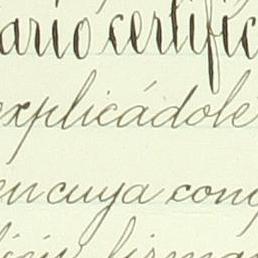 ario certific
explicádole
en cuya con